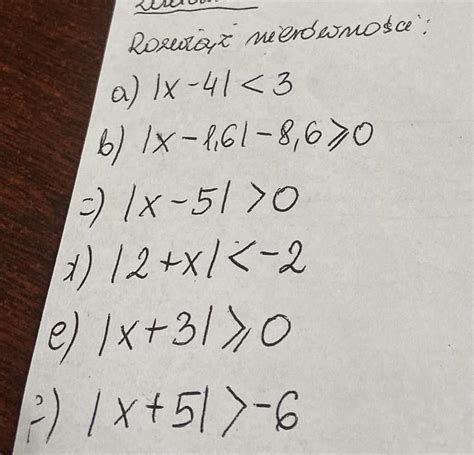 Rozwiąż nierówności:
a) |x-4|<3
b) |x-1,6|-8,6⩾0
c) |x-5|>0
d) |2+x|<-2
e) |x+3|⩾0
f) |x+5|>-6